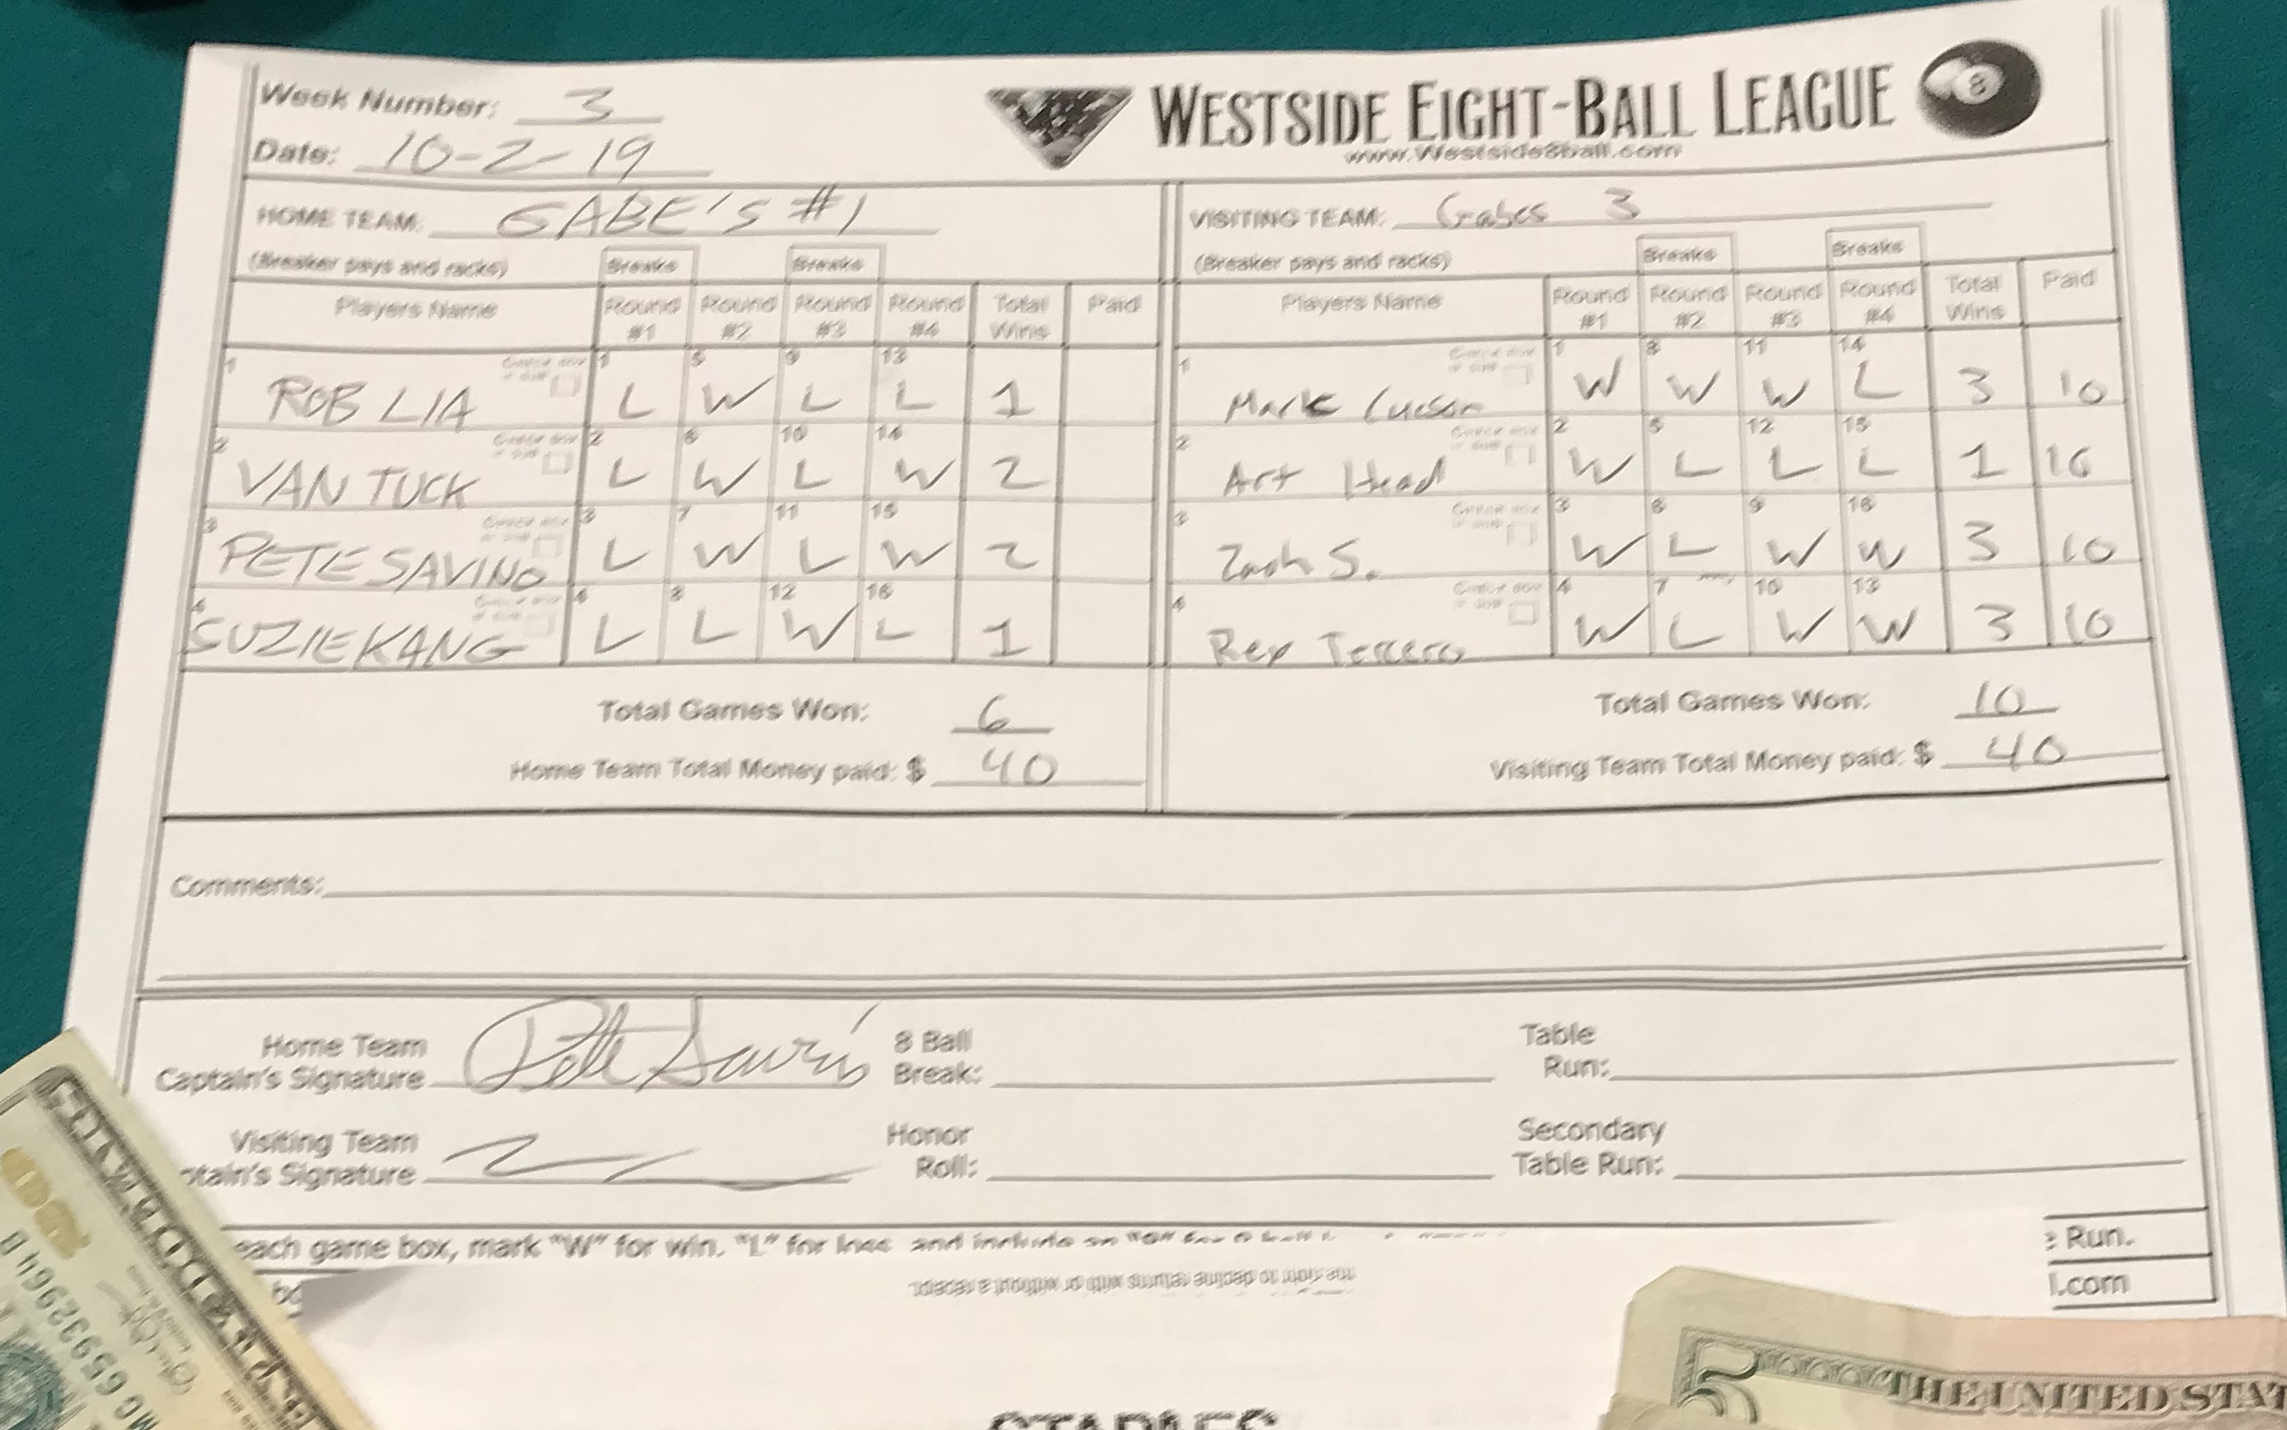 Week Number: 3
WESTSIDE EIGHT-BALL LEAGUE 8
Date: 10-2-19
www.Westside8ball.com
HOME TEAM: GABE'S #1
(Breaker pays and racks) Breaks Breaks
Players Name Round #1 Round #2 Round #3 Round #4 Total Wins Paid
1 ROB LIA 1 L 5 W 9 L 13 L 1
2 VAN TUCK 2 L 6 W 10 L 14 W 2
3 PETE SAVINO 3 L 7 W 11 L 15 W 2
4 SUZIE KANG 4 L 8 L 12 W 16 L 1
Total Games Won: 6
Home Team Total Money paid: $ 40
VISITING TEAM: Gabes 3
(Breaker pays and racks) Breaks Breaks
Players Name Round #1 Round #2 Round #3 Round #4 Total Wins Paid
1 Mark 1 W 8 W 11 W 14 L 3 10
2 Art Head 2 W 5 L 12 L 15 L 1 10
3 Zach S. 3 W 6 L 9 W 16 W 3 10
4 Rex Tercero 4 W 7 L 10 W 13 W 3 10
Total Games Won: 10
Visiting Team Total Money paid: $ 40
Comments:
Home Team Captain's Signature Pete Savino
8 Ball Break:
Table Run:
Visiting Team ptain's Signature
Honor Roll:
Secondary Table Run:
each game box, mark "W" for win. "L" for loss and include an
: Run.
l.com
the right to decline returns with or without a receipt.
STAPLES
MG65932964B
5
THE UNITED STAT